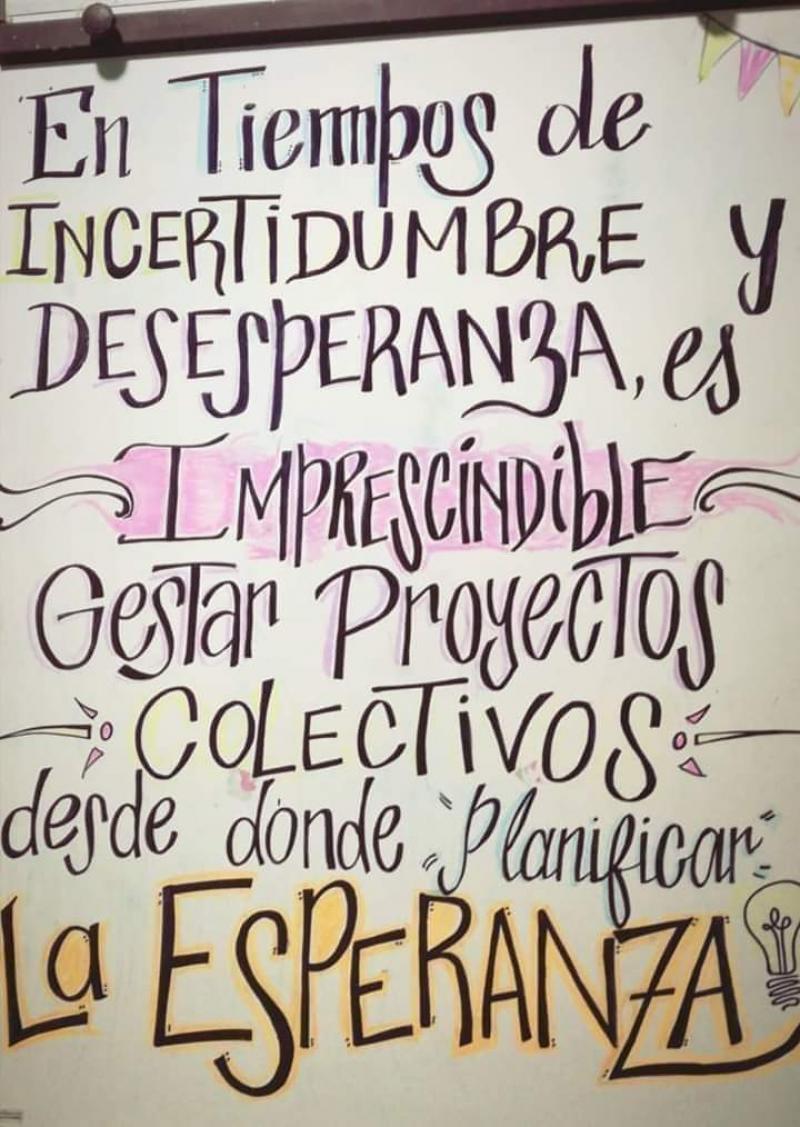 En Tiempos de
INCERTIDUMBRE y
DESESPERANZA, es
IMPRESCiNDibLE
Gestar Proyectos
COLECTiVOS
desde donde "Planificar"
La ESPERANZA